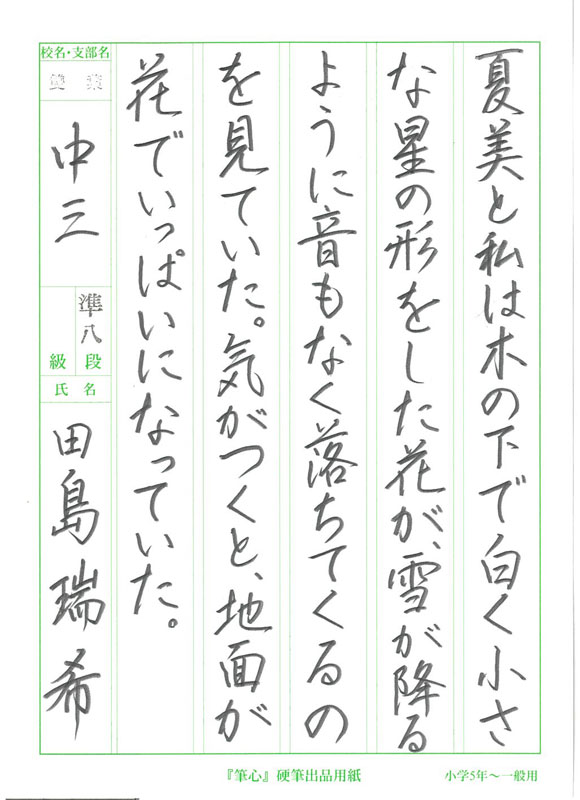 夏美と私は木の下で白く小さ
な星の形をした花が、雪が降る
ように音もなく落ちてくるの
を見ていた。気がつくと、地面が
花でいっぱいになっていた。
校名・支部名
双葉
中三
準八段
級
氏名
田島瑞希
『筆心』硬筆出品用紙
小学5年～一般用